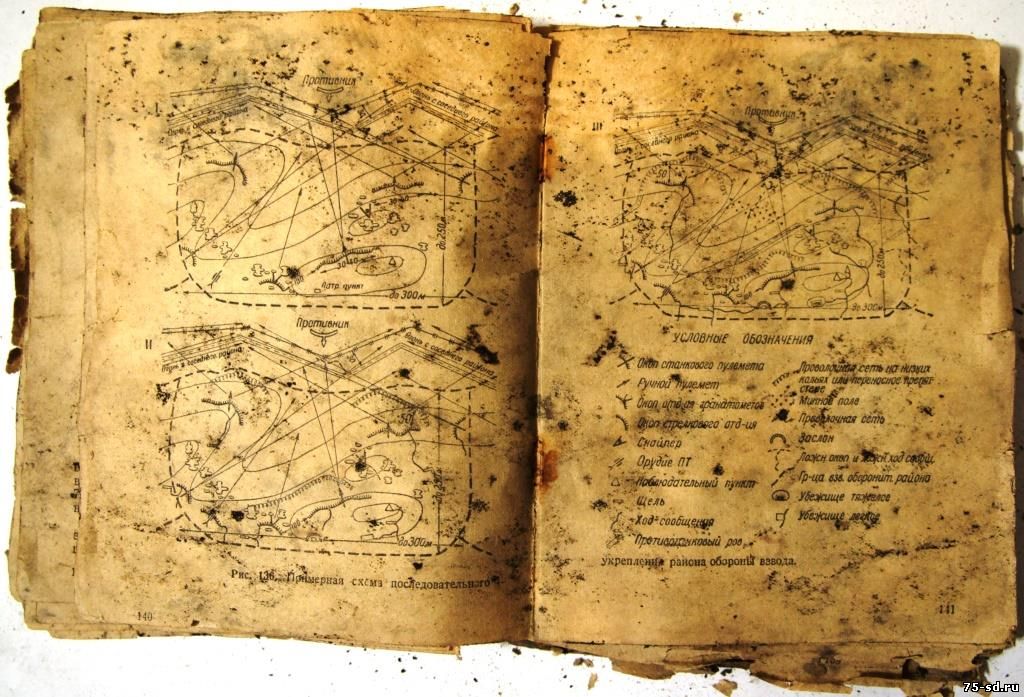 Противник
I
Огонь с соседнего района
до 250м
30-40
Патр. пункт
до 300м
Противник
II
Огонь с соседнего района
50
до 250м
до 300м
Рис. 126. Примерная схема последовательного
140
Противник
III
50
до 250м
до 300м
УСЛОВНЫЕ ОБОЗНАЧЕНИЯ
Окоп станкового пулемета
Ручной пулемет
Окоп отд-ия гранатометов
Окоп стрелкового отд-ия
Снайпер
Орудие ПТ
Наблюдательный пункт
Щель
Ход сообщения
Противотанковый ров
Проволочная сеть на низких
кольях или переносное препят
ствие
Минное поле
Проволочная сеть
Заслон
Ложн окоп и ложн ход сообщ.
Гр-ца взв. оборонит. района
Убежище тяжелое
Убежище легкое
укрепления района обороны взвода.
141
75-sd.ru